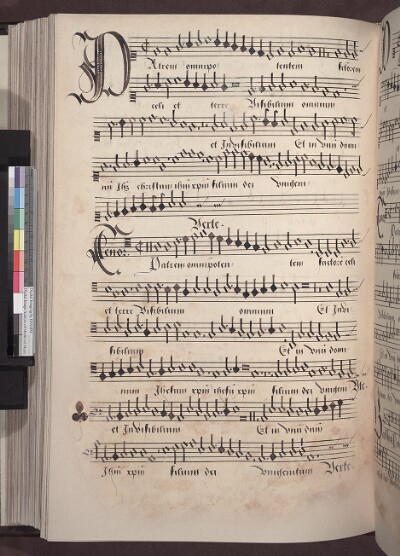 Patrem omnipo tentem factorem
celi et terre Visibilium omnium
et Invisibilium Et in vnū dom
nū Jhs christum ihūxpiū filium dei Vnigeni
Verte
Tenor
Patrem omnipoten tem factorē celi
et terre Visibilium omnium Et Invi
sibilium Et in vnū dom
num Jhesum xpiū ihesū xpiū filium dei Vnigeni
et Invisibilium Et in vnū dūm
Jhūm xpiū filium dei Vnigenitum Verte